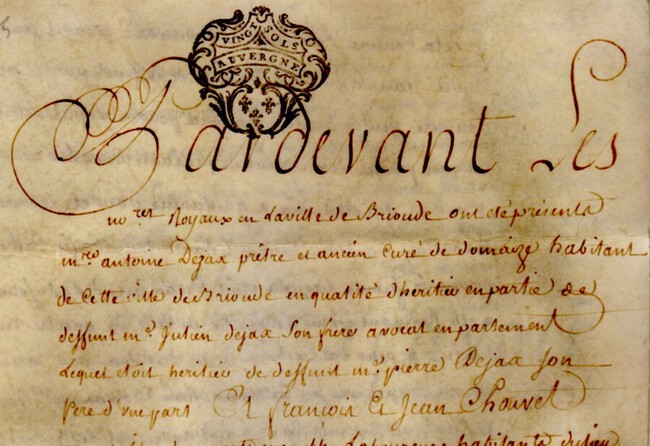 VINGT SOLS
AUVERGNE
Pardevant Les
no.res Royaux en Laville de Brioude ont été présents
m.re antoine Dejax prêtre et ancien curé de domaize habitant
de cette ville de Brioude en qualité d'heritier en partie de
deffunt m.e Julien dejax son frere avocat en parlement
Lequel étoit heritier de deffunt m.e pierre Dejax son
pere d'une part Et françois Et Jean Chouvet
habitants du lieu